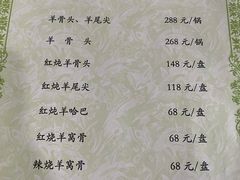 羊骨头、羊尾尖 288 元/锅
羊骨头 268 元/锅
红炖羊骨头 148 元/盘
红炖羊尾尖 118 元/盘
红炖羊哈巴 68 元/盘
红炖羊窝骨 68 元/盘
辣烧羊窝骨 68 元/盘